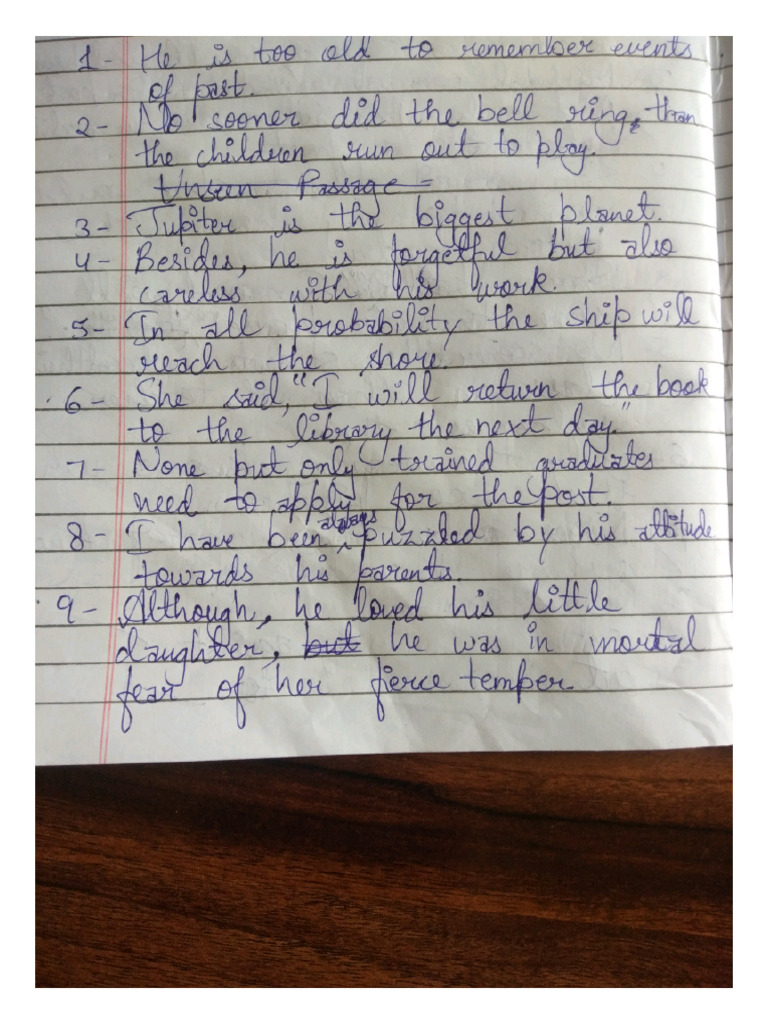 1- He is too old to remember events
of past.
2- No sooner did the bell ring, than
the children run out to play.
Unseen Passage -
3- Jupiter is the biggest planet.
4- Besides, he is forgetful but also
careless with his work.
5- In all probability the ship will
reach the shore.
6- She said, "I will return the book
to the library the next day."
7- None but only trained graduates
need to apply for the post.
8- I have been always puzzled by his attitude
towards his parents.
9- Although, he loved his little
daughter, but he was in mortal
fear of her fierce temper.